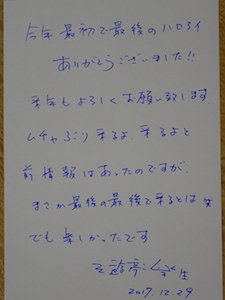 今年最初で最後のハロライ
ありがとうございました!!
来年もよろしくお願い致します
ムチャぶり来るよ、来るよと
前情報はあったのですが、
まさか最後の最後で来るとは 笑
でも楽しかったです
2017.12.29